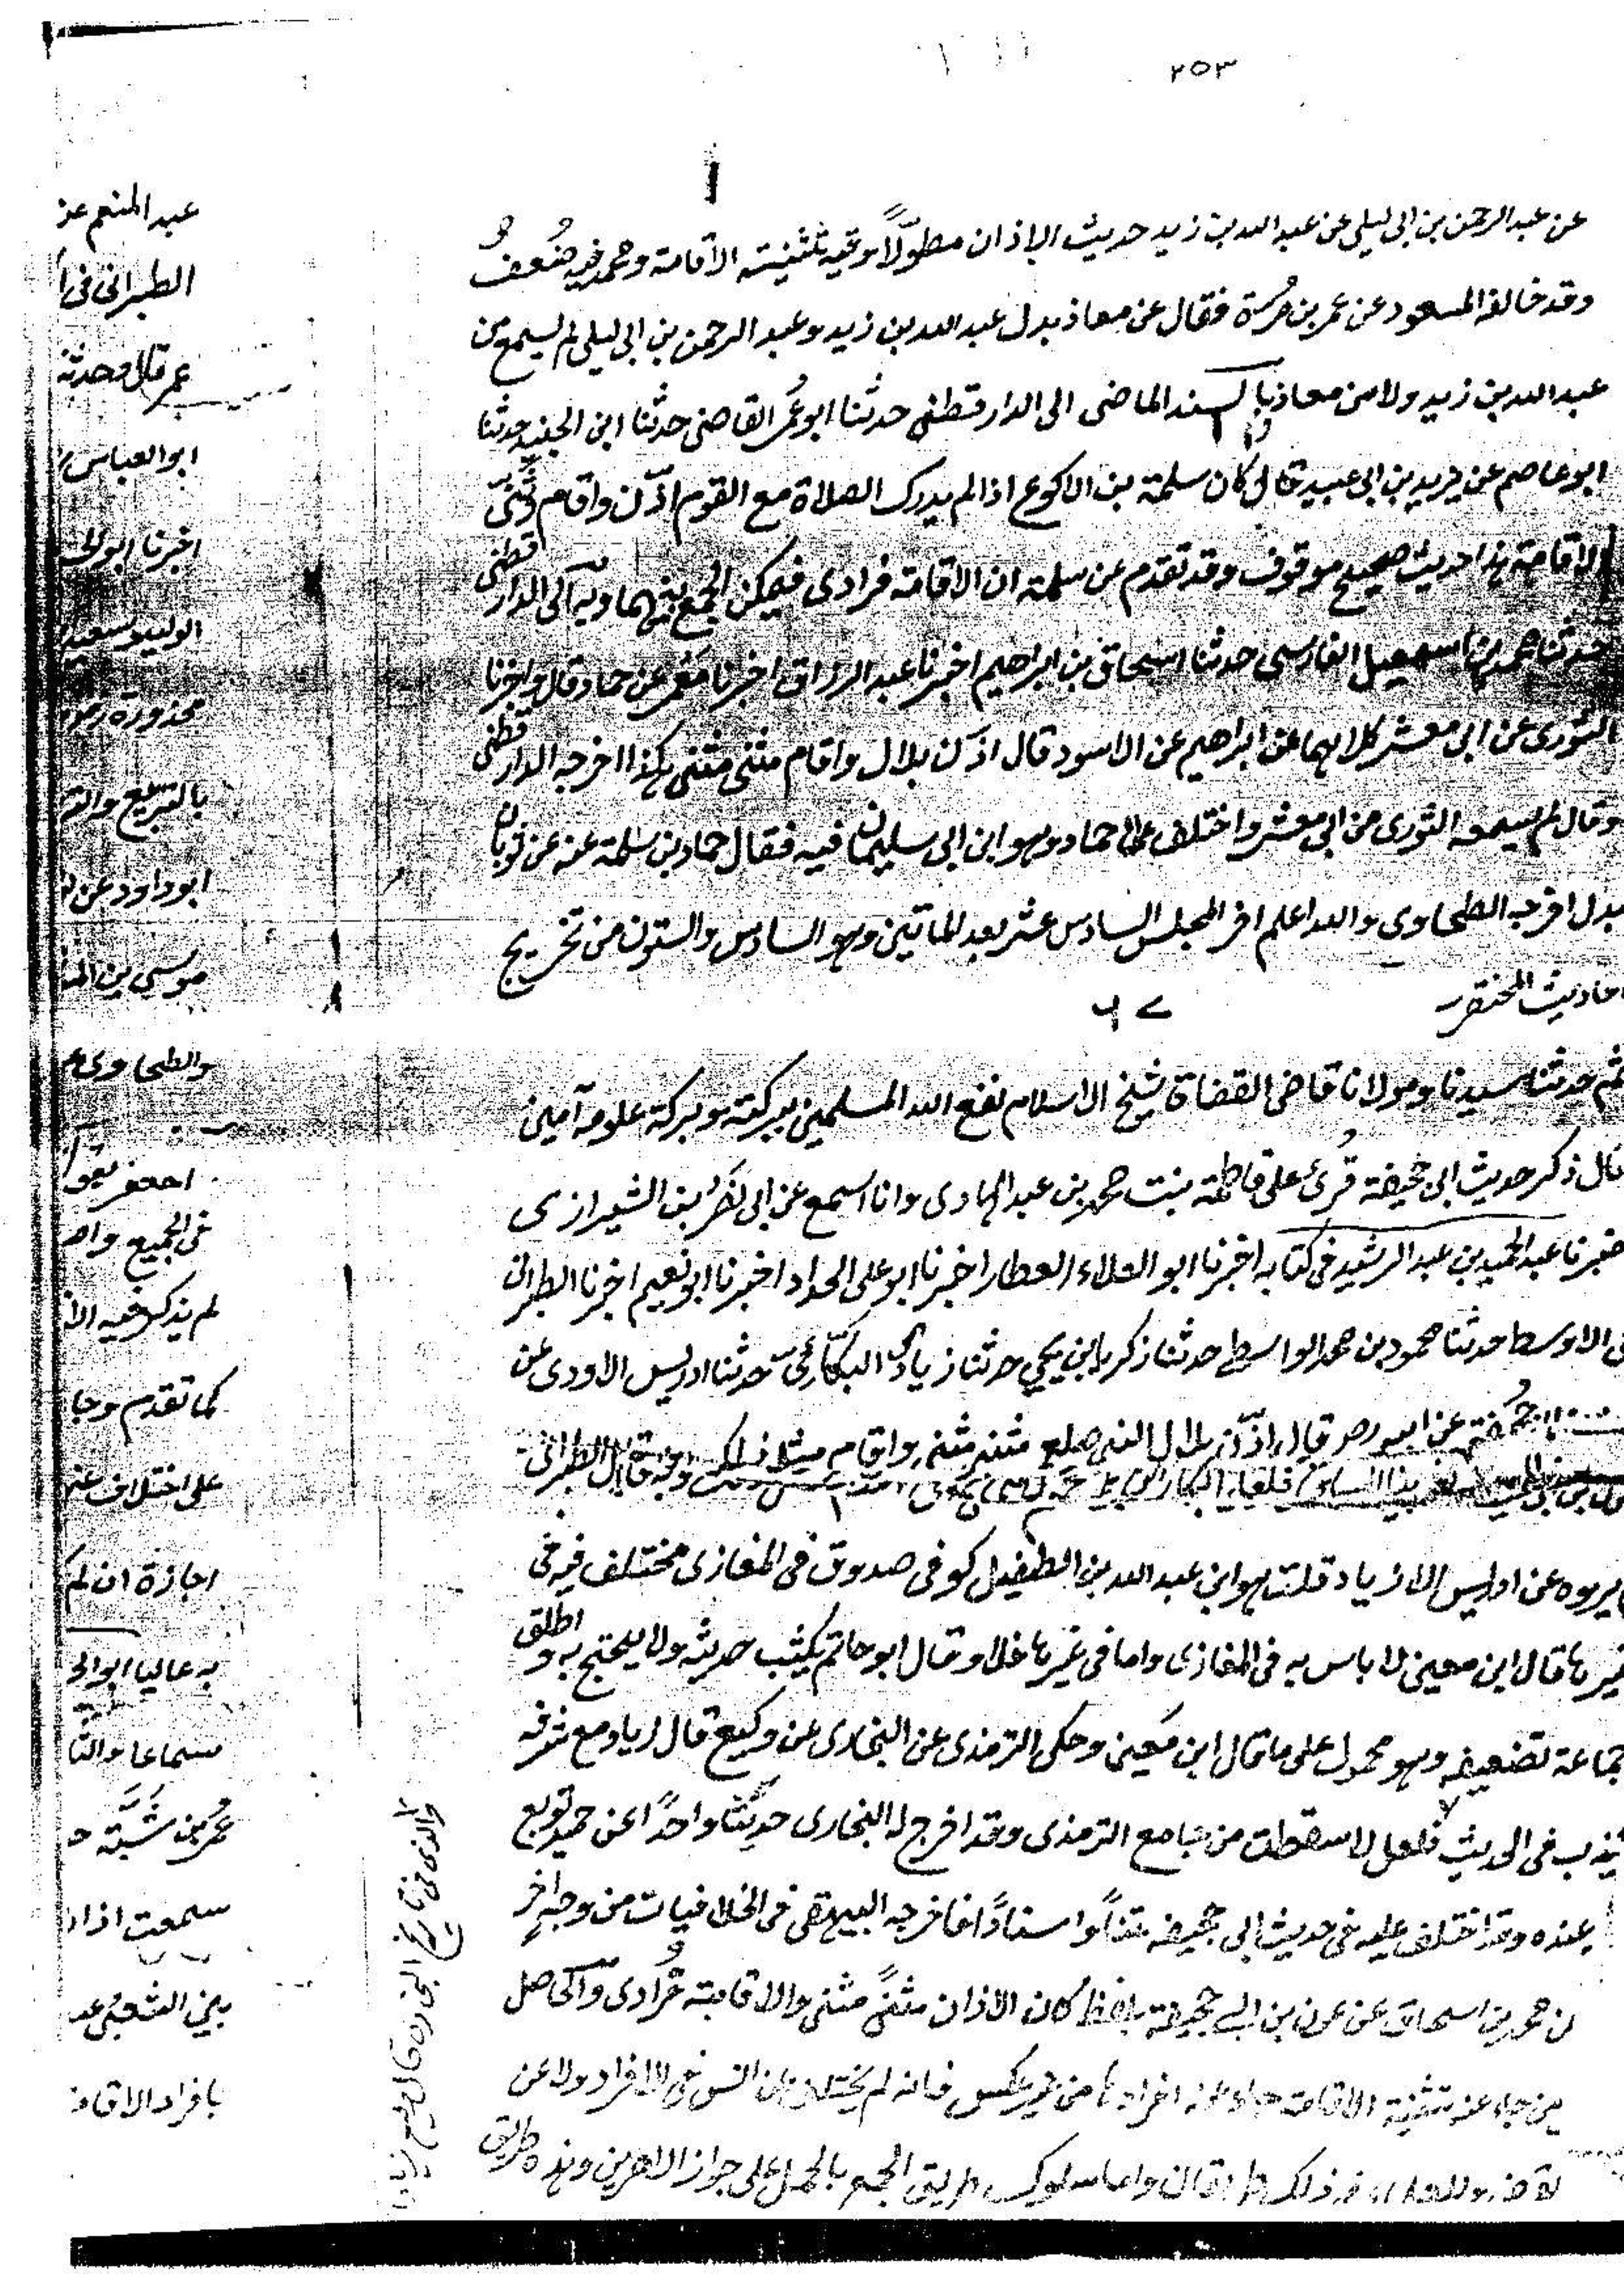 ٢٥٣
عن عبد الرحمن بن ابى ليلى عن عبد الله بن زيد حديث الاذان مطولًا وفيه تثنية الاقامة ومحمد فيه ضُعف
وقد خالفه المسعود عن عمر بن مُرة فقال عن معاذ بدل عبد الله بن زيد وعبد الرحمن بن ابى ليلى لم يسمع من
عبد الله بن زيد ولا من معاذ بالسند الماضى الى الدارقطنى حدثنا ابو عُمر القاضى حدثنا ابن الجنيد حدثنا
ابو عاصم عن يزيد بن ابى عبيد قال كان سلمة بن الاكوع اذا لم يدرك الصلاة مع القوم اذّن واقام وثنّى
الاقامة هذا حديث صحيح موقوف وقد تقدم عن سلمة ان الاقامة فرادى فيمكن الجمع بينهما وبه الى الدارقطنى
حدثنا محمد بن اسمعيل الفارسى حدثنا اسحاق بن ابراهيم اخبرنا عبد الرزاق اخبرنا مَعْمر عن حماد قال واخبرنا
الثورى عن ابى معشر كلاهما عن ابراهيم عن الاسود قال اذّن بلال واقام مثنى مثنى هكذا اخرجه الدارقطنى
وقال لم يسمعه الثورى من ابى معشر واختلف على حماد وهو ابن ابى سليمان فيه فقال حماد بن سلمة عنه عن ثوبان
بدل اخرجه الطحاوى والله اعلم اخر المجلس السادس عشر بعد المأتين وهو السادس والستون من تخريج
احاديث المختصر
٦٧
ثم حدثنا سيدنا ومولانا قاضى القضاة شيخ الاسلام نفع الله المسلمين ببركته وبركة علومه آمين
قال ذكر حديث ابى جحيفة قُرئ على فاطمة بنت محمد بن عبد الهادى وانا اسمع عن ابى نَصْر بن الشيرازى
خبرنا عبد الحميد بن عبد الرشيد فى كتابه اخبرنا ابو العلاء العطار اخبرنا ابو على الحداد اخبرنا ابو نعيم اخبرنا الطبرانى
فى الاوسط حدثنا محمود بن محمد الواسطى حدثنا زكريا بن يحيى حدثنا زياد البكّائى حدثنا ادريس الاودى عن
جحيفة عن ابيه قال اذّن بلال للنبى صلعم مثنى مثنى واقام مثل ذلك وبه قال الطبرانى
يروه عن ادريس الا زياد قلت هو ابن عبد الله بن الطفيل كوفى صدوق فى المغازى مختلف فيه فى
غيرها قال ابن معين لا باس به فى المغازى واما فى غيرها فلا وقال ابو حاتم يكتب حديثه ولا يحتج به واطلق
جماعة تضعيفه وهو محمول على ما قال ابن مَعين وحكى الترمذى عن البخارى عن وكيع قال زياد مع شرفه
يكذب فى الحديث فلعل لا سقطت من جامع الترمذى وقد اخرج له البخارى حديثًا واحدًا عن حميد توبع
عنده وقد اختلف عليه فى حديث ابى جحيفة متنًا واسنادًا فاخرجه البيهقى فى الخلافيات من وجه اخر
ن محمد بن اسحاق عن عون بن ابى جحيفة بلفظ كان الاذان مثنًى مثنى والاقامة فُرادى والحاصل
من جاء عنه تثنية الاقامة جاء عنه افرادها من غير عكس فانه لم يختلف عن انس فى الافراد ولا عن
ذلك طريقان واما سلوك طريق الجمع بالحمل على جواز الامرين وهذه طريق
والذى فى تاريخ البخارى قال وكيع
عبد المنعم عن
الطبرانى فى ا
عمر قال وحدثنا
ابو العباس
اخبرنا ابو
الوليد وسعيد
محذورة
بالتربيع والتر
ابو داود عن
موسى بن
والطحاوى
فى الجميع
لم يذكر فيه الا
كما تقدم وجا
على اختلاف عنه
اجازة ان لم
به عاليا ابو الح
سماعا
عُمر بن شَبَّة ح
سمعت اذان
بين الشعبى
بافراد الاقامة